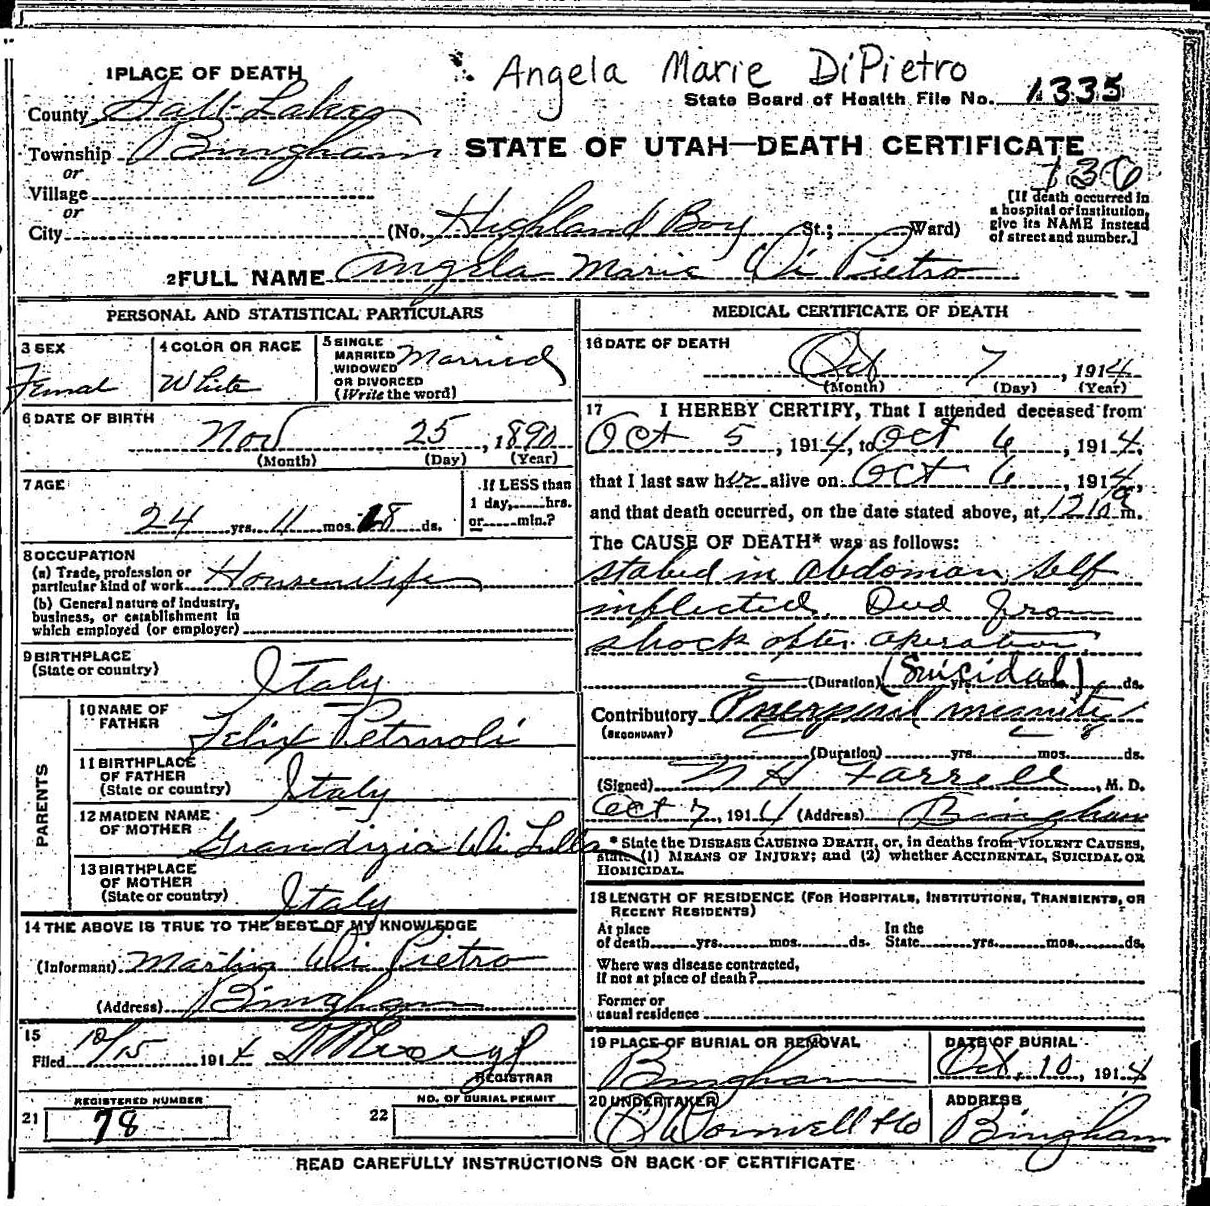 Angela Marie DiPietro
1 PLACE OF DEATH
State Board of Health File No. 1335
County Salt Lake
Township Bingham
STATE OF UTAH—DEATH CERTIFICATE
136
or
Village
or
City (No. Highland Boy St.; Ward)
[If death occurred in
a hospital or institution,
give its NAME instead
of street and number.]
2 FULL NAME Angela Marie Di Pietro
PERSONAL AND STATISTICAL PARTICULARS
3 SEX
Femal
4 COLOR OR RACE
White
5 SINGLE
MARRIED
WIDOWED
OR DIVORCED
(Write the word)
Married
6 DATE OF BIRTH
Nov 25, 1890
(Month) (Day) (Year)
7 AGE
24 yrs. 11 mos. 18 ds.
If LESS than
1 day, hrs.
or min.?
8 OCCUPATION
(a) Trade, profession or
particular kind of work Housewife
(b) General nature of industry,
business, or establishment in
which employed (or employer)
9 BIRTHPLACE
(State or country)
Italy
PARENTS
10 NAME OF
FATHER
Felix
11 BIRTHPLACE
OF FATHER
(State or country)
Italy
12 MAIDEN NAME
OF MOTHER
Grandizia Di Lulla
13 BIRTHPLACE
OF MOTHER
(State or country)
Italy
14 THE ABOVE IS TRUE TO THE BEST OF MY KNOWLEDGE
(Informant) Martin Di Pietro
(Address) Bingham
15
Filed 10/15 1914
REGISTRAR
REGISTERED NUMBER
21 78
NO. OF BURIAL PERMIT
22
MEDICAL CERTIFICATE OF DEATH
16 DATE OF DEATH
Oct 7, 1914
(Month) (Day) (Year)
17 I HEREBY CERTIFY, That I attended deceased from
Oct 5, 1914, to Oct 6, 1914,
that I last saw her alive on Oct 6, 1914,
and that death occurred, on the date stated above, at 1210 a m.
The CAUSE OF DEATH* was as follows:
stabed in abdoman self
inflected. Died from
shock after operation
(Suicidal)
(Duration) yrs. mos. ds.
Contributory Puerperil
(SECONDARY)
(Duration) yrs. mos. ds.
(Signed) N H Farrell, M. D.
Oct 7, 1914 (Address) Bingham
* State the DISEASE CAUSING DEATH, or, in deaths from VIOLENT CAUSES,
state (1) MEANS OF INJURY; and (2) whether ACCIDENTAL, SUICIDAL OR
HOMICIDAL.
18 LENGTH OF RESIDENCE (FOR HOSPITALS, INSTITUTIONS, TRANSIENTS, OR
RECENT RESIDENTS)
At place
of death yrs. mos. ds.
In the
State yrs. mos. ds.
Where was disease contracted,
if not at place of death?
Former or
usual residence
19 PLACE OF BURIAL OR REMOVAL
Bingham
DATE OF BURIAL
Oct. 10, 1914
20 UNDERTAKER
ADDRESS
Bingham
READ CAREFULLY INSTRUCTIONS ON BACK OF CERTIFICATE